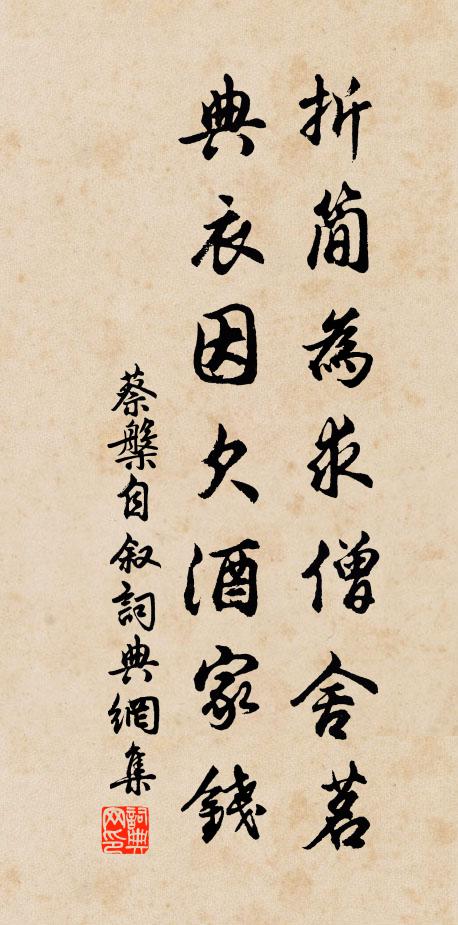 折簡為求僧舍茗
典衣因欠酒家錢
蔡槃自叙詞典網集
詞典网印